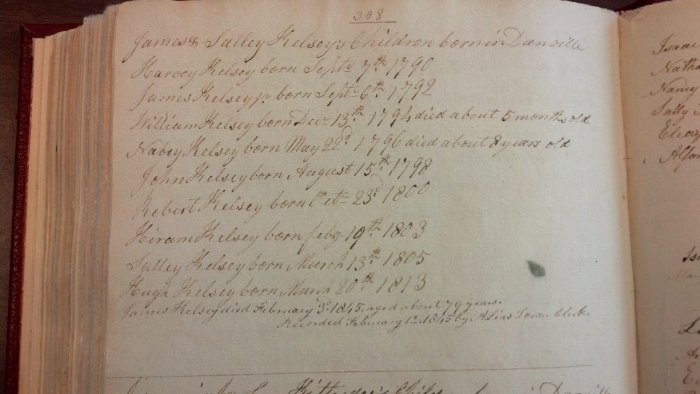 308
James & Salley Kelsey's Children born in Danville
Harvey Kelsey born Septr 7th 1790
James Kelsey Jr born Septr 6th 1792
William Kelsey born Decr 13th 1794 died about 5 months old
Nabey Kelsey born May 22d 1796 died about 8 years old
John Kelsey born August 15th 1798
Robert Kelsey born Octr 23d 1800
Hiram Kelsey born feby 19th 1803
Salley Kelsey born March 13th 1805
Hugh Kelsey born March 20th 1813
James Kelsey died February 3d 1845. aged about 79 years.
Recorded February 12 1845 by Town Clerk.
Children born in Danville
Isaac
Natha
Nancy
Sally